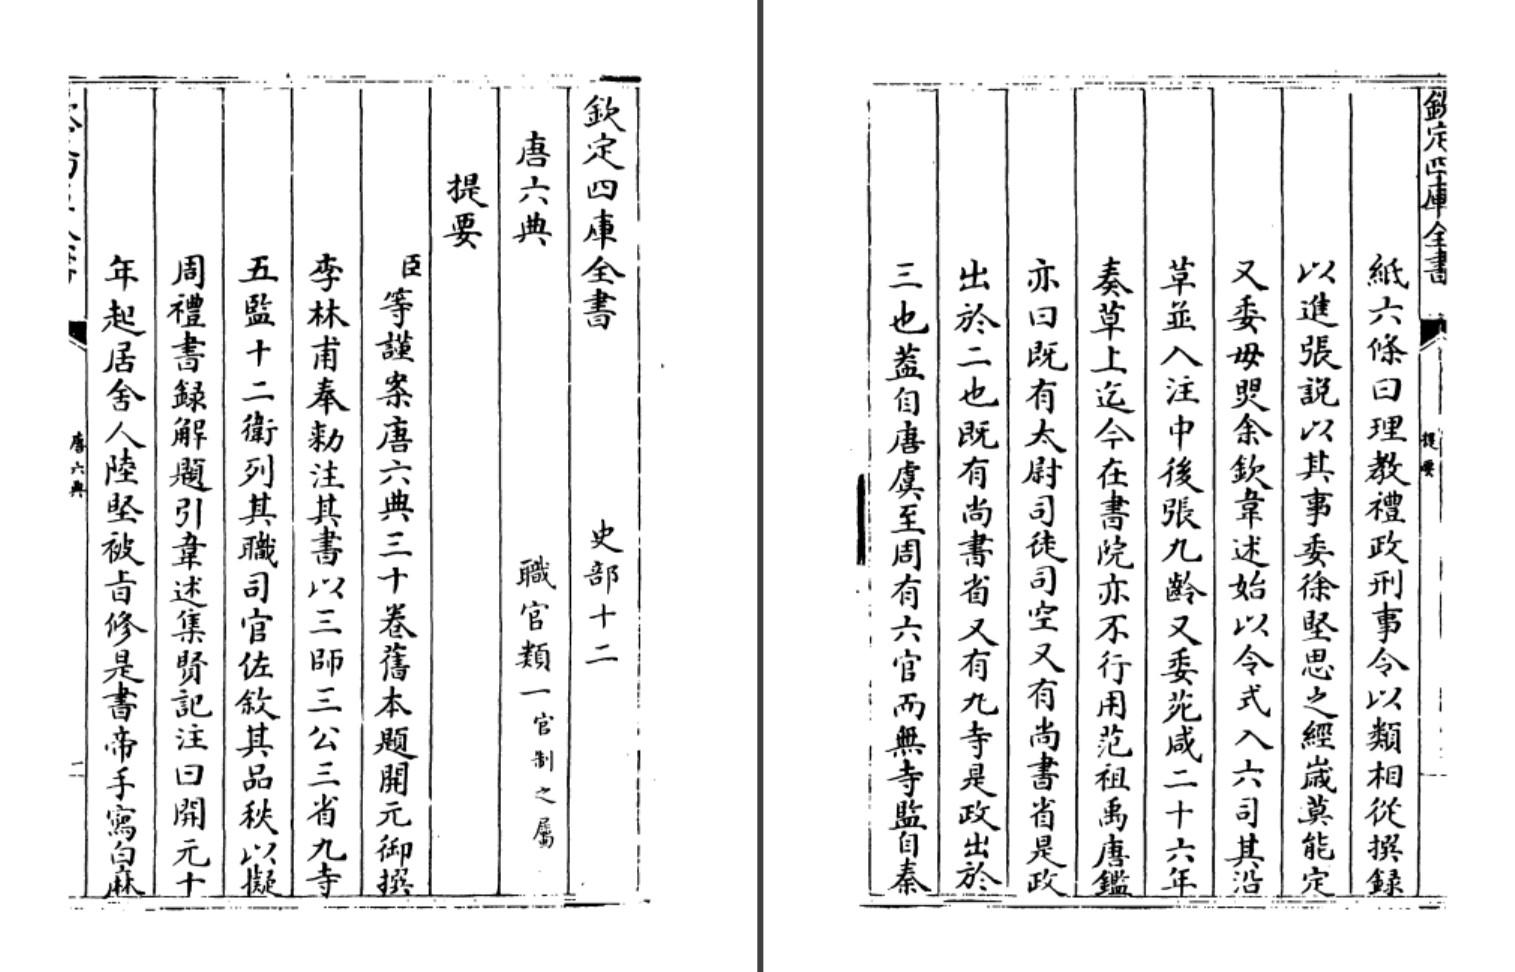 欽定四庫全書 史部十二
唐六典 職官類一官制之屬
提要
臣等謹案唐六典三十卷舊本題開元御撰
李林甫奉勑注其書以三師三公三省九寺
五監十二衛列其職司官佐敘其品秩以擬
周禮書録解題引韋述集賢記注曰開元十
年起居舍人陸堅被旨修是書帝手寫白麻
唐六典
欽定四庫全書
提要
紙六條曰理教禮政刑事令以類相從撰録
以進張説以其事委徐堅思之經嵗莫能定
又委毋煚余欽韋述始以令式入六司其沿
草並入注中後張九齡又委苑咸二十六年
奏草上迄今在書院亦不行用范祖禹唐鑑
亦曰既有太尉司徒司空又有尚書省是政
出於二也既有尚書省又有九寺是政出於
三也葢自唐虞至周有六官而無寺監自秦